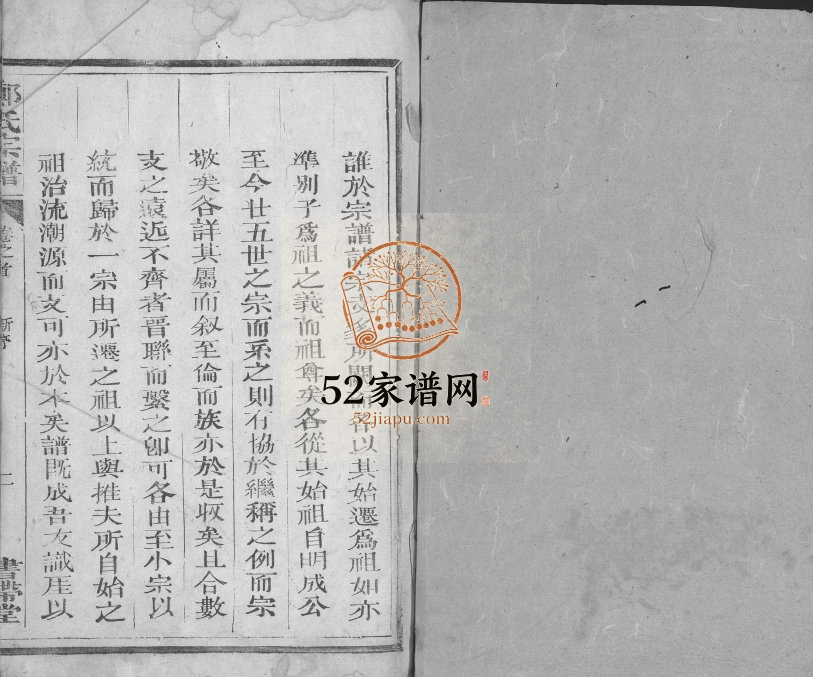 誰於宗譜諸宗支爰所關而各以其始遷爲祖如亦
準別子爲祖之義而祖尊矣各從其始祖自明成公
至今廿五世之宗而系之則有協於繼稱之例而宗
敬矣各詳其屬而叙至倫而族亦於是収矣且合數
支之遠近不齊者晋聯而繫之卽可各由至小宗以
統而歸於一宗由所遷之祖以上與推夫所自始之
祖治流潮源而支可亦於本矣譜既成吾友識厓以
鄭氏宗譜
卷之首 新序 二
書帶堂
52家谱网
52jiapu.com